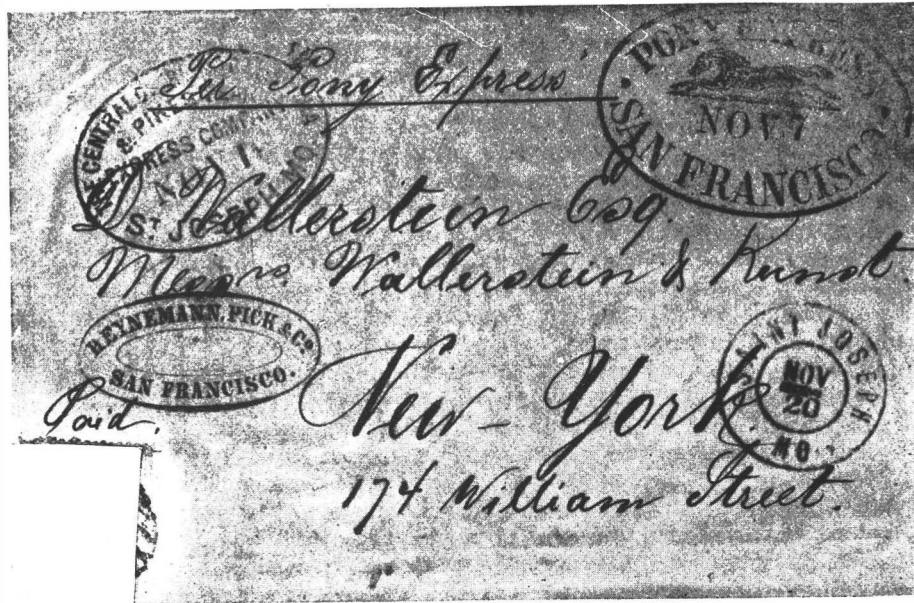 Per Pony Express
PONY EXPRESS
NOV 7
SAN FRANCISCO
CENTRAL
& PIK
EXPRESS COMPANY
NOV
ST JOSEPH MO.
Wallerstein Esq.
Messrs. Wallerstein & Kunst.
HEYNEMANN, PICK & Co
SAN FRANCISCO.
SAINT JOSEPH
NOV
20
MO.
Paid.
New-York
174 William Street.